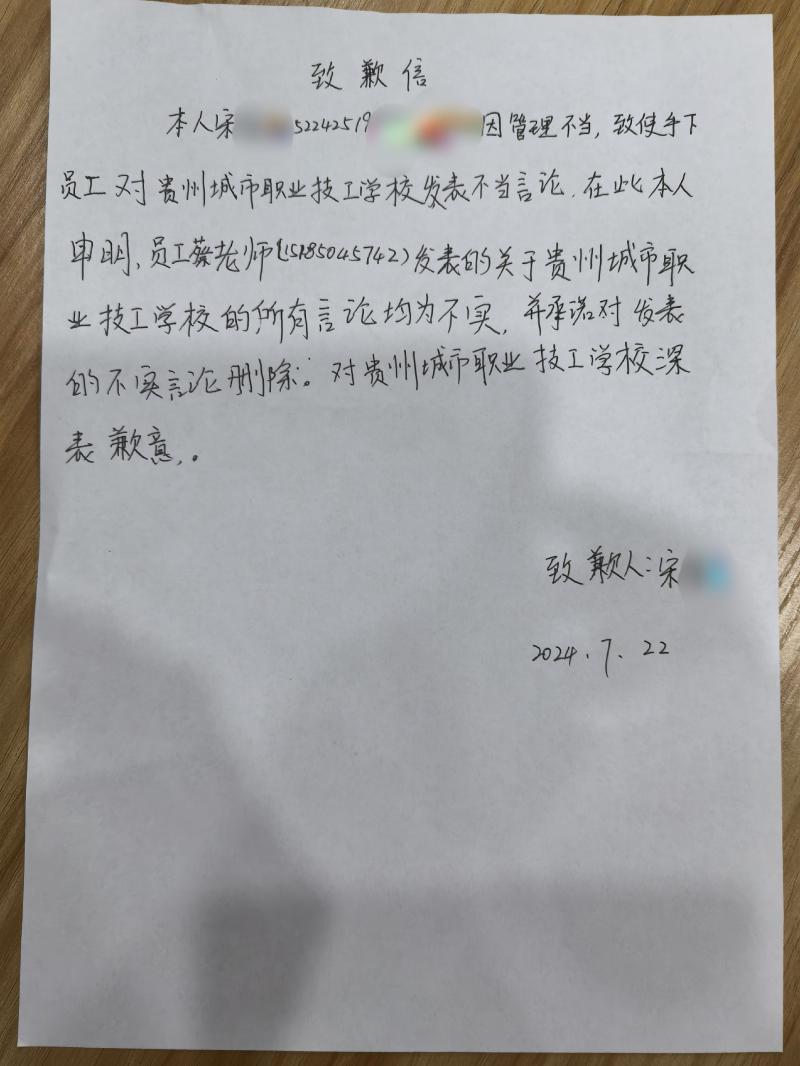 致歉信
本人宋 52242519 因管理不当，致使手下
员工对贵州城市职业技工学校发表不当言论.在此本人
申明，员工蔡老师(15185045742)发表的关于贵州城市职
业技工学校的所有言论均为不实，并承诺对发表
的不实言论删除。对贵州城市职业技工学校深
表歉意,。
致歉人:宋
2024.7.22